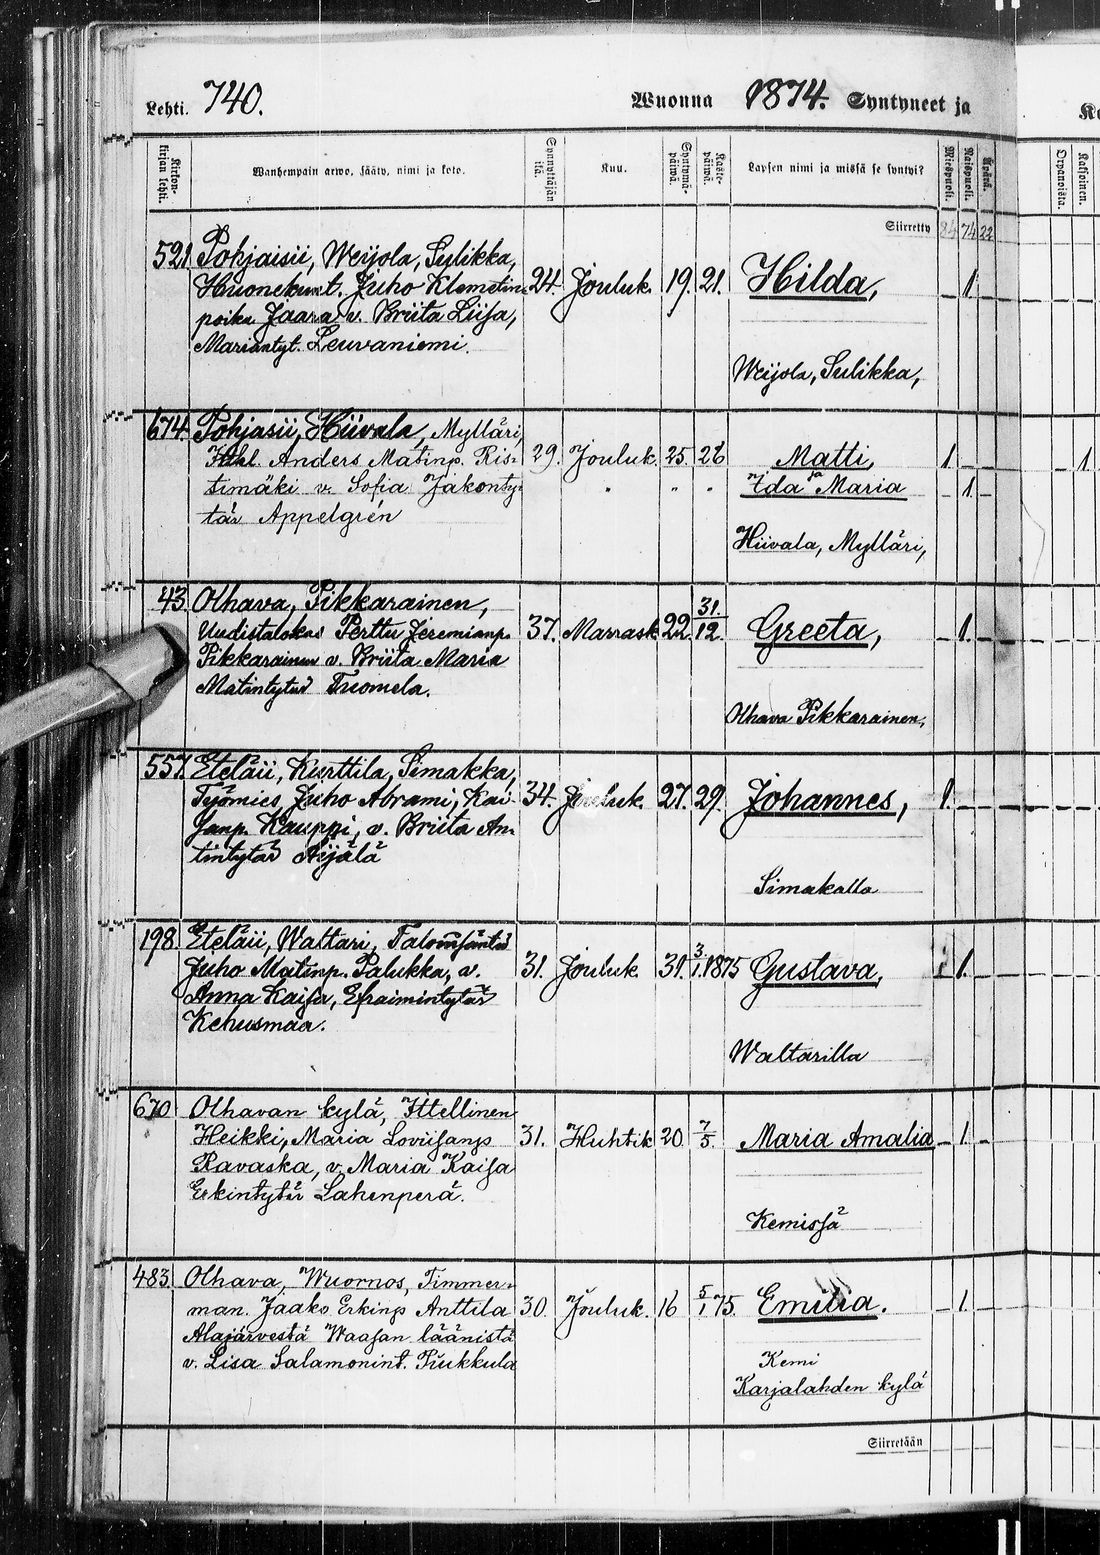 Lehti. 740. Wuonna 1874. Syntyneet ja
Kirkon-kirjan lehti. Wanhempain arwo, sääty, nimi ja koto. Synnyttäjän ikä. Kuu. Syntymä-päiwä. Kaste-päiwä. Lapsen nimi ja missä se syntyi? Miespuoli. Naispuoli. Orpanoista. Kaksoinen.
Siirretty 84 74 22
521 Pohjaisii, Weijola, Sulikka,
Huonekunt. Juho Klemetin 24. Jouluk. 19. 21. Hilda, 1
poika Jaara v. Briita Liisa,
Mariantyt. Leuvaniemi.
Weijola, Sulikka,
674. Pohjasii, Hiivala, Mylläri,
Anders Matinp. Ris- 29. Jouluk. 25. 26 Matti, 1 1
timäki v. Sofia Jakonty- " " " ja Ida Maria 1
tär Appelgrén
Hiivala, Mylläri,
43. Olhava, Pikkarainen,
Uudistalokas Perttu Jeremianp. 37. Marrask. 22. 31./12. Greeta, 1.
Pikkarainen v. Briita Maria
Matintytär Tuomela.
Olhava Pikkarainen,
557. Eteläii, Kurttila, Simakka,
Työmies Juho Abrami, Kai- 34. Jouluk 27. 29. Johannes, 1.
sanp. Kauppi, v. Briita An-
tintytär Aijälä
Simakalla
198. Eteläii, Wattari, Talon
Juho Matinp. Palukka, v. 31. Jouluk 31. 3/1.1875 Gustava, 1.
Anna Kaisa, Efraimintytär
Kehusmaa.
Waltarilla
670 Olhavan kylä, Ittellinen
Heikki, Maria Loviisanp 31. Huhtik 20. 7/5. Maria Amalia 1
Ravaska, v. Maria Kaisa
Erkintytär Lahenperä.
Kemissä
483. Olhava, Wuornos, Timmer-
man. Jaako Erkinp Anttila 30. Jouluk. 16 5/1 75. Emilia. 1.
Alajärvestä Waasan läänistä
v. Lisa Salamonint. Puukkula
Kemi
Karjalahden kylä
Siirretään